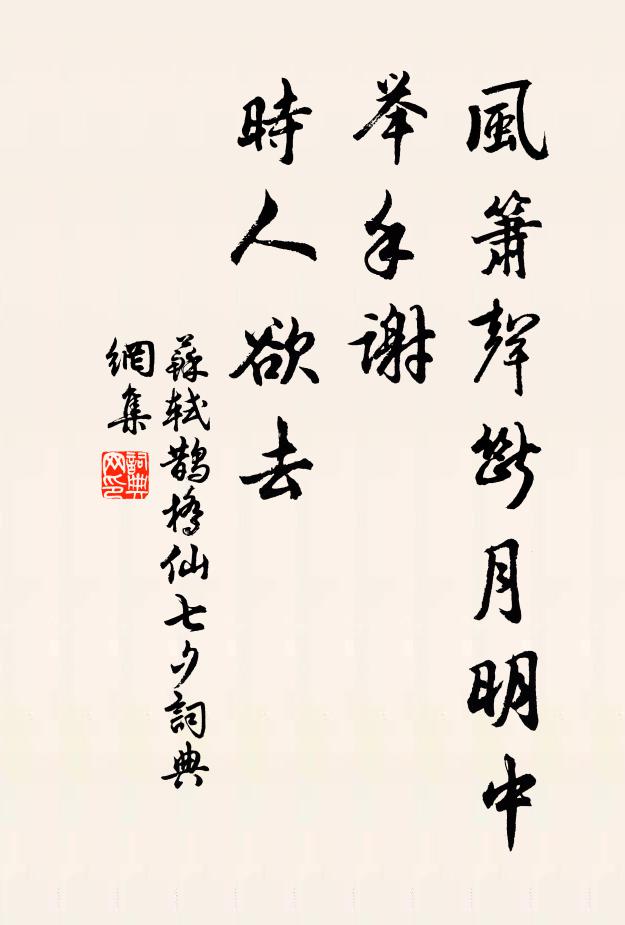 風箫聲斷月明中
举手謝
時人欲去
蘇軾鹊橋仙七夕詞典
網集
詞典网印